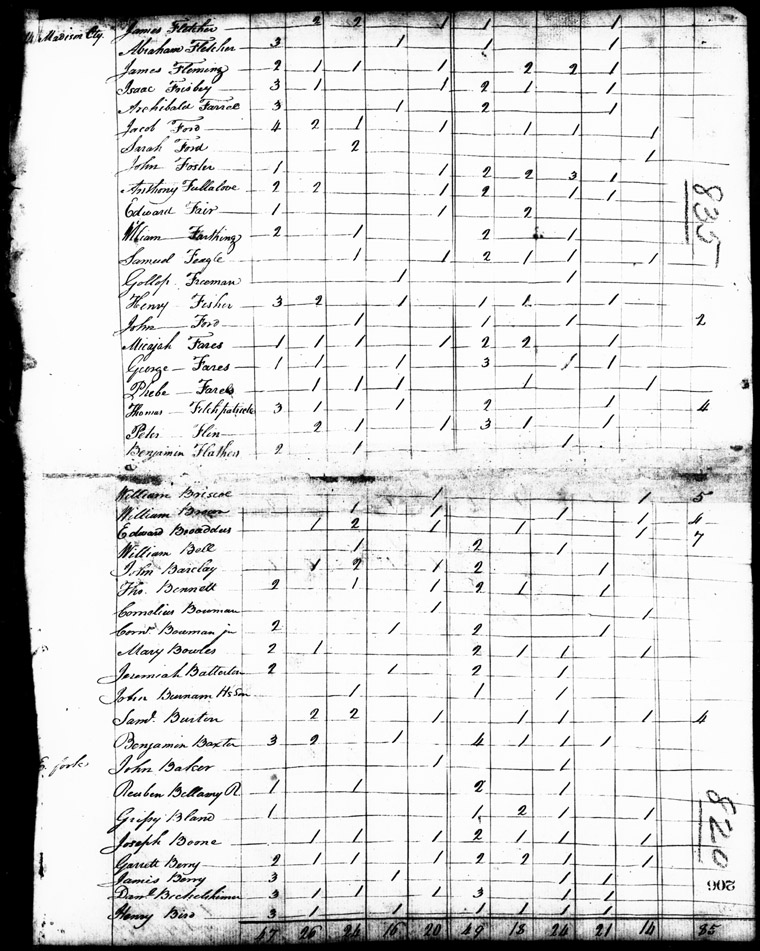 Madison Cty.
James Fletcher 2 2 1 1 1
Abraham Fletcher 3 1 1 1
James Fleming 2 1 1 1 2 2 1
Isaac Frisby 3 1 1 2 1 1
Archibald 3 1 2 1
Jacob Ford 4 2 1 1 1 1 1
Sarah Ford 2 1
John Foster 1 1 2 2 3 1
Anthony Fullalove 2 2 1 2 1 1
835
Edward Fair 1 1 2
William Farthing 2 1 2 1
Samuel Feagle 1 1 2 1 1 1
Gollop Freeman 1 1
Henry Fisher 3 2 1 1 2 1
John Ford 1 1 1 2
Micajah Fares 1 1 1 1 2 2 1
George Fares 1 1 1 3 1 1
Phebe Fares 1 1 1 1 1
Thomas Fitchpatrick 3 1 1 2 1 4
Peter Flin 2 1 1 3 1 1
Benjamin Flathers 2 1 1
William Briscoe 1 1 5
William 1 1 1 1 4
Edward Broaddus 1 2 1 1 1 7
William Boll 1 2 1
John Barclay 1 2 1 2 1
Tho. Bennett 2 1 1 2 1 1
Cornelius Bowman 1 1
Corns. Bowman jr 2 1 2 1
Mary Bowles 2 1 2 1 1 1
Jeremiah Batterton 2 1 2 1
John Burnam 1 1 1
Saml. Burton 2 2 1 1 1 1 4
Benjamin Baxter 3 2 1 4 1 1 1
fork John Baker 1 1
Reuben Bellamy R 1 1 2 1
820
Gripy Bland 1 1 2 1 1
Joseph Boone 1 1 1 2 1 1 1
Garrett Berry 2 1 1 1 2 2 1 1
206
James Berry 3 1 1 1
Danl. 3 1 1 1 3 1 1
Henry Bird 3 1 1 1 1 1 1
47 26 24 16 20 49 18 24 21 14 35